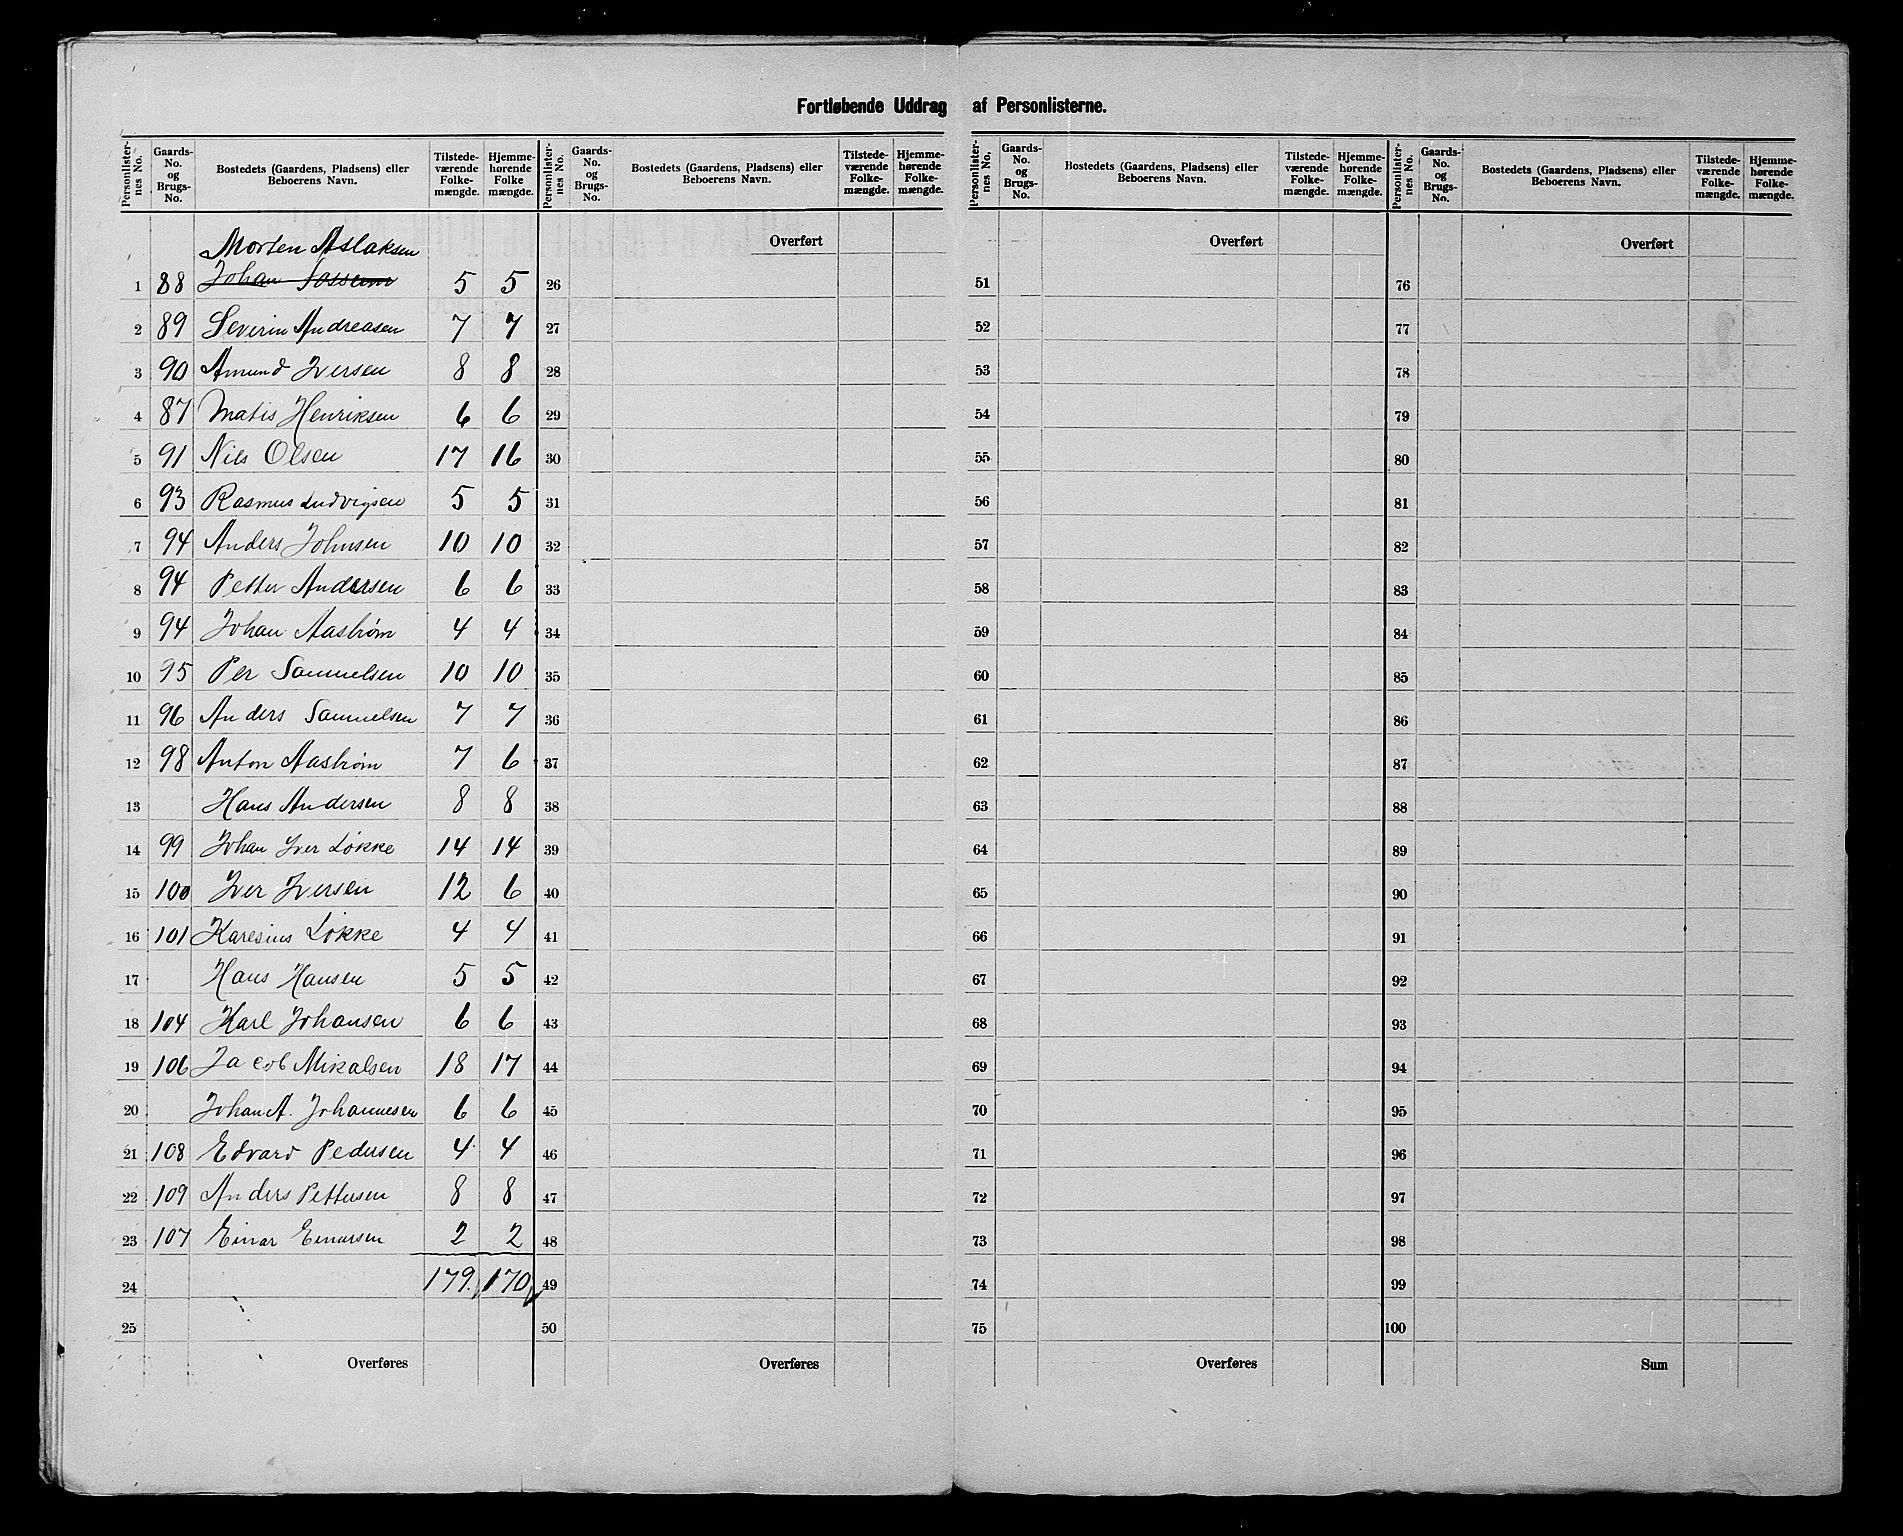 Fortløbende Uddrag af Personlisterne.
Personlisternes No. | Gaards-No. og Brugs-No. | Bostedets (Gaardens, Pladsens) eller Beboerens Navn. | Tilstedeværende Folkemængde. | Hjemmehørende Folkemængde.
Morten Aslaksen
1 88 Johan 5 5
2 89 Severin Andreasen 7 7
3 90 Amund Iversen 8 8
4 87 Matis Henriksen 6 6
5 91 Nils Olsen 17 16
6 93 Rasmus Ludvigsen 5 5
7 94 Anders Johnsen 10 10
8 94 Petter Andersen 6 6
9 94 Johan Aastrøm 4 4
10 95 Per Samuelsen 10 10
11 96 Anders Samuelsen 7 7
12 98 Anton Aastrøm 7 6
13 Hans Andersen 8 8
14 99 Johan Iver Løkke 14 14
15 100 Iver Iversen 12 6
16 101 Karesius Løkke 4 4
17 Hans Hansen 5 5
18 104 Karl Johansen 6 6
19 106 Jacob Mikalsen 18 17
20 Johan A. Johannesen 6 6
21 108 Edvard Pedersen 4 4
22 109 Anders Pettersen 8 8
23 107 Einar Einarsen 2 2
24 179. 170
25
Overføres
Personlisternes No. | Gaards-No. og Brugs-No. | Bostedets (Gaardens, Pladsens) eller Beboerens Navn. | Tilstedeværende Folkemængde. | Hjemmehørende Folkemængde.
Overført
26
27
28
29
30
31
32
33
34
35
36
37
38
39
40
41
42
43
44
45
46
47
48
49
50
Overføres
Personlisternes No. | Gaards-No. og Brugs-No. | Bostedets (Gaardens, Pladsens) eller Beboerens Navn. | Tilstedeværende Folkemængde. | Hjemmehørende Folkemængde.
Overført
51
52
53
54
55
56
57
58
59
60
61
62
63
64
65
66
67
68
69
70
71
72
73
74
75
Overføres
Personlisternes No. | Gaards-No. og Brugs-No. | Bostedets (Gaardens, Pladsens) eller Beboerens Navn. | Tilstedeværende Folkemængde. | Hjemmehørende Folkemængde.
Overført
76
77
78
79
80
81
82
83
84
85
86
87
88
89
90
91
92
93
94
95
96
97
98
99
100
Sum